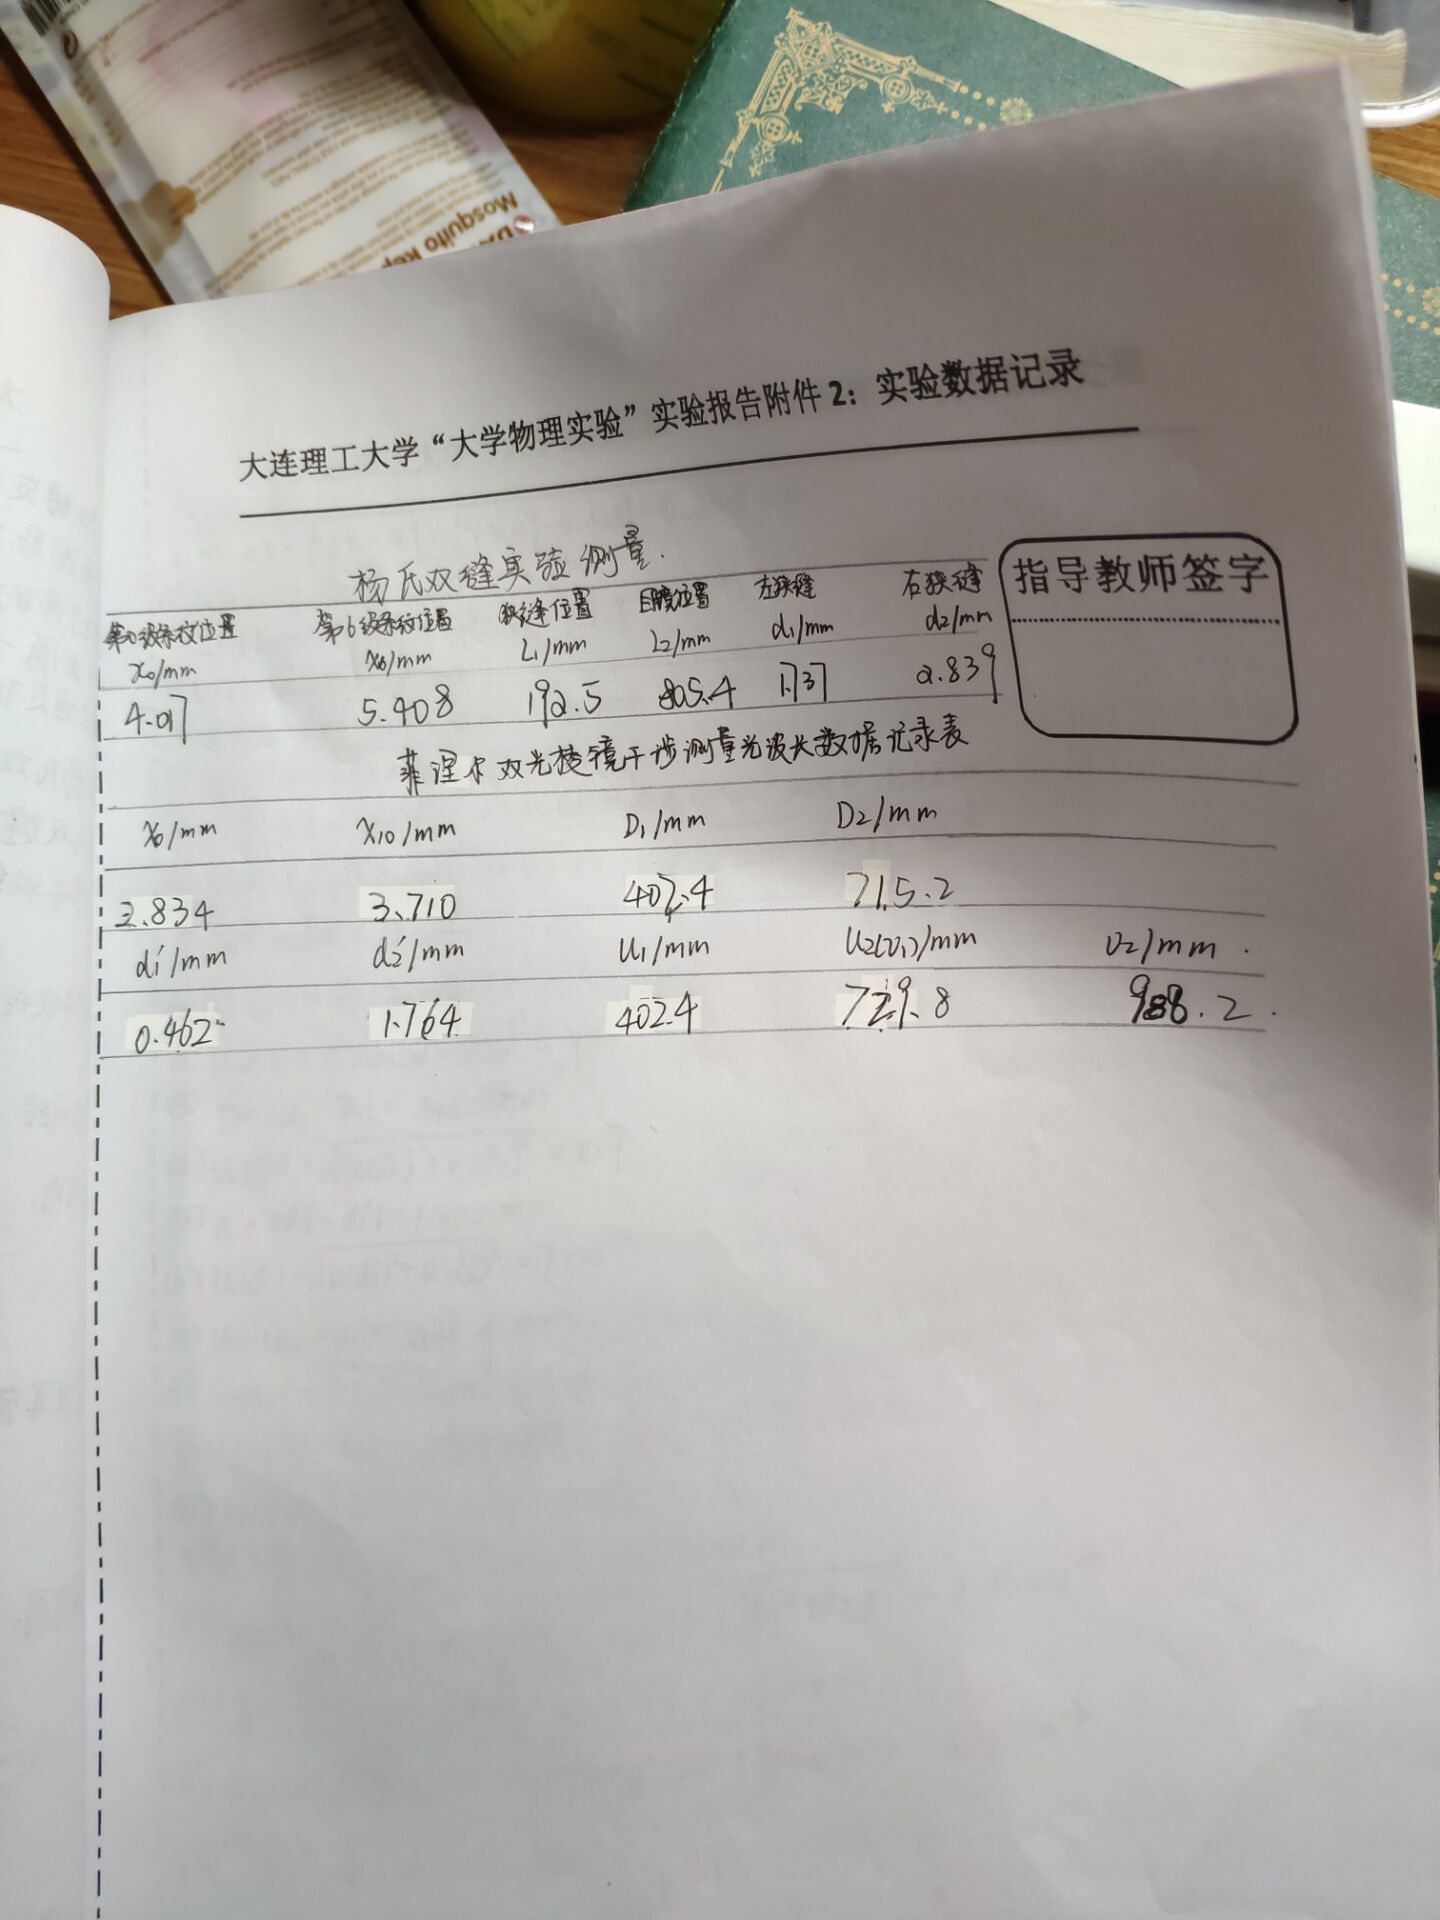 Mosquito Rep
大连理工大学“大学物理实验”实验报告附件2：实验数据记录
杨氏双缝实验测量.
指导教师签字
第0级条纹位置 第6级条纹位置 狭缝位置 目镜位置 左狭缝 右狭缝
x₀/mm x₆/mm L₁/mm L₂/mm d₁/mm d₂/mm
4.017 5.408 192.5 805.4 1.737 2.839
菲涅尔双光棱镜干涉测量光波长数据记录表
x₀/mm x₁₀/mm D₁/mm D₂/mm
2.834 3.710 402.4 715.2
d₁'/mm d₂'/mm u₁/mm u₂(v₁)/mm v₂/mm.
0.462 1.764 402.4 729.8 988.2.